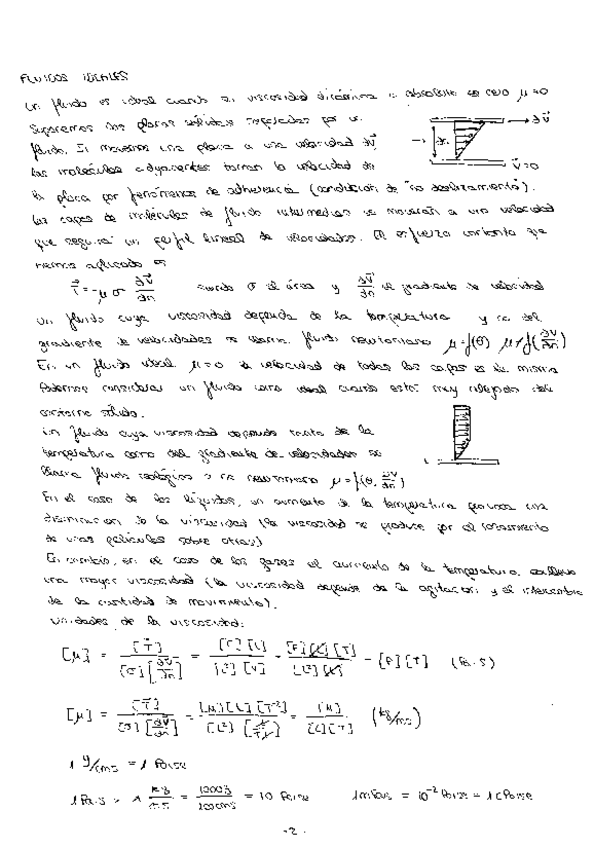 FLUIDOS IDEALES
Un fluido es ideal cuando su viscosidad dinámica o absoluta es cero μ=0
Suponemos dos placas sólidas separadas por un → ∂V⃗
fluido. Si movemos una placa a una velocidad ∂V⃗ ∂n
las moléculas adyacentes toman la velocidad de V⃗=0
la placa por fenómenos de adherencia (condición de "no deslizamiento").
Las capas de moléculas de fluido intermedias se moverán a una velocidad
que seguirá un perfil lineal de velocidades. El esfuerzo cortante que
hemos aplicado es
T⃗ = -μ σ ∂V⃗/∂n siendo σ el área y ∂V⃗/∂n el gradiente de velocidad
Un fluido cuya viscosidad dependa de la temperatura y no del
gradiente de velocidades se llama fluido newtoniano μ=f(θ) μ≠f(∂V⃗/∂n)
En un fluido ideal μ=0 la velocidad de todas las capas es la misma
Podemos considerar un fluido como ideal cuando está muy alejado del
contorno sólido.
Un fluido cuya viscosidad dependa tanto de la
temperatura como del gradiente de velocidades se
llama fluido reológico o no newtoniano μ=f(θ, ∂V⃗/∂n)
En el caso de los líquidos, un aumento de la temperatura provoca una
disminución de la viscosidad (la viscosidad se produce por el
de unas películas sobre otras)
En cambio, en el caso de los gases el aumento de la temperatura conlleva
una mayor viscosidad (la viscosidad depende de la agitación y el intercambio
de la cantidad de movimiento).
Unidades de la viscosidad:
[μ] = [T⃗]/([σ][∂V⃗/∂n]) = [F][L]/([L²][V]) = [P][L][T]/([L²][L]) = [P][T] (Pa·s)
[μ] = [T⃗]/([σ][∂V⃗/∂n]) = [M][L][T⁻²]/([L²][L/TL]) = [M]/([L][T]) (kg/ms)
1 g/cms = 1 Poise
1 Pa·s = 1 kg/ms = 1000g/100cms = 10 Poise 1 mPa·s = 10⁻² Poise = 1 cPoise
-2-